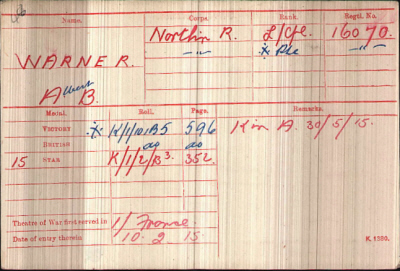 Name. Corps. Rank. Regtl. No.
North'n R. L/Cpl. 16070.
WARNER. -"- * Pte -"-
Albert B.
Medal. Roll. Page. Remarks.
VICTORY * K/1/101B5 596 Kin A. 30/5/15.
BRITISH do do
15 STAR K/1/2/B3. 352.
Theatre of War first served in 1) France.
Date of entry therein 10.2.15.
K. 1380.